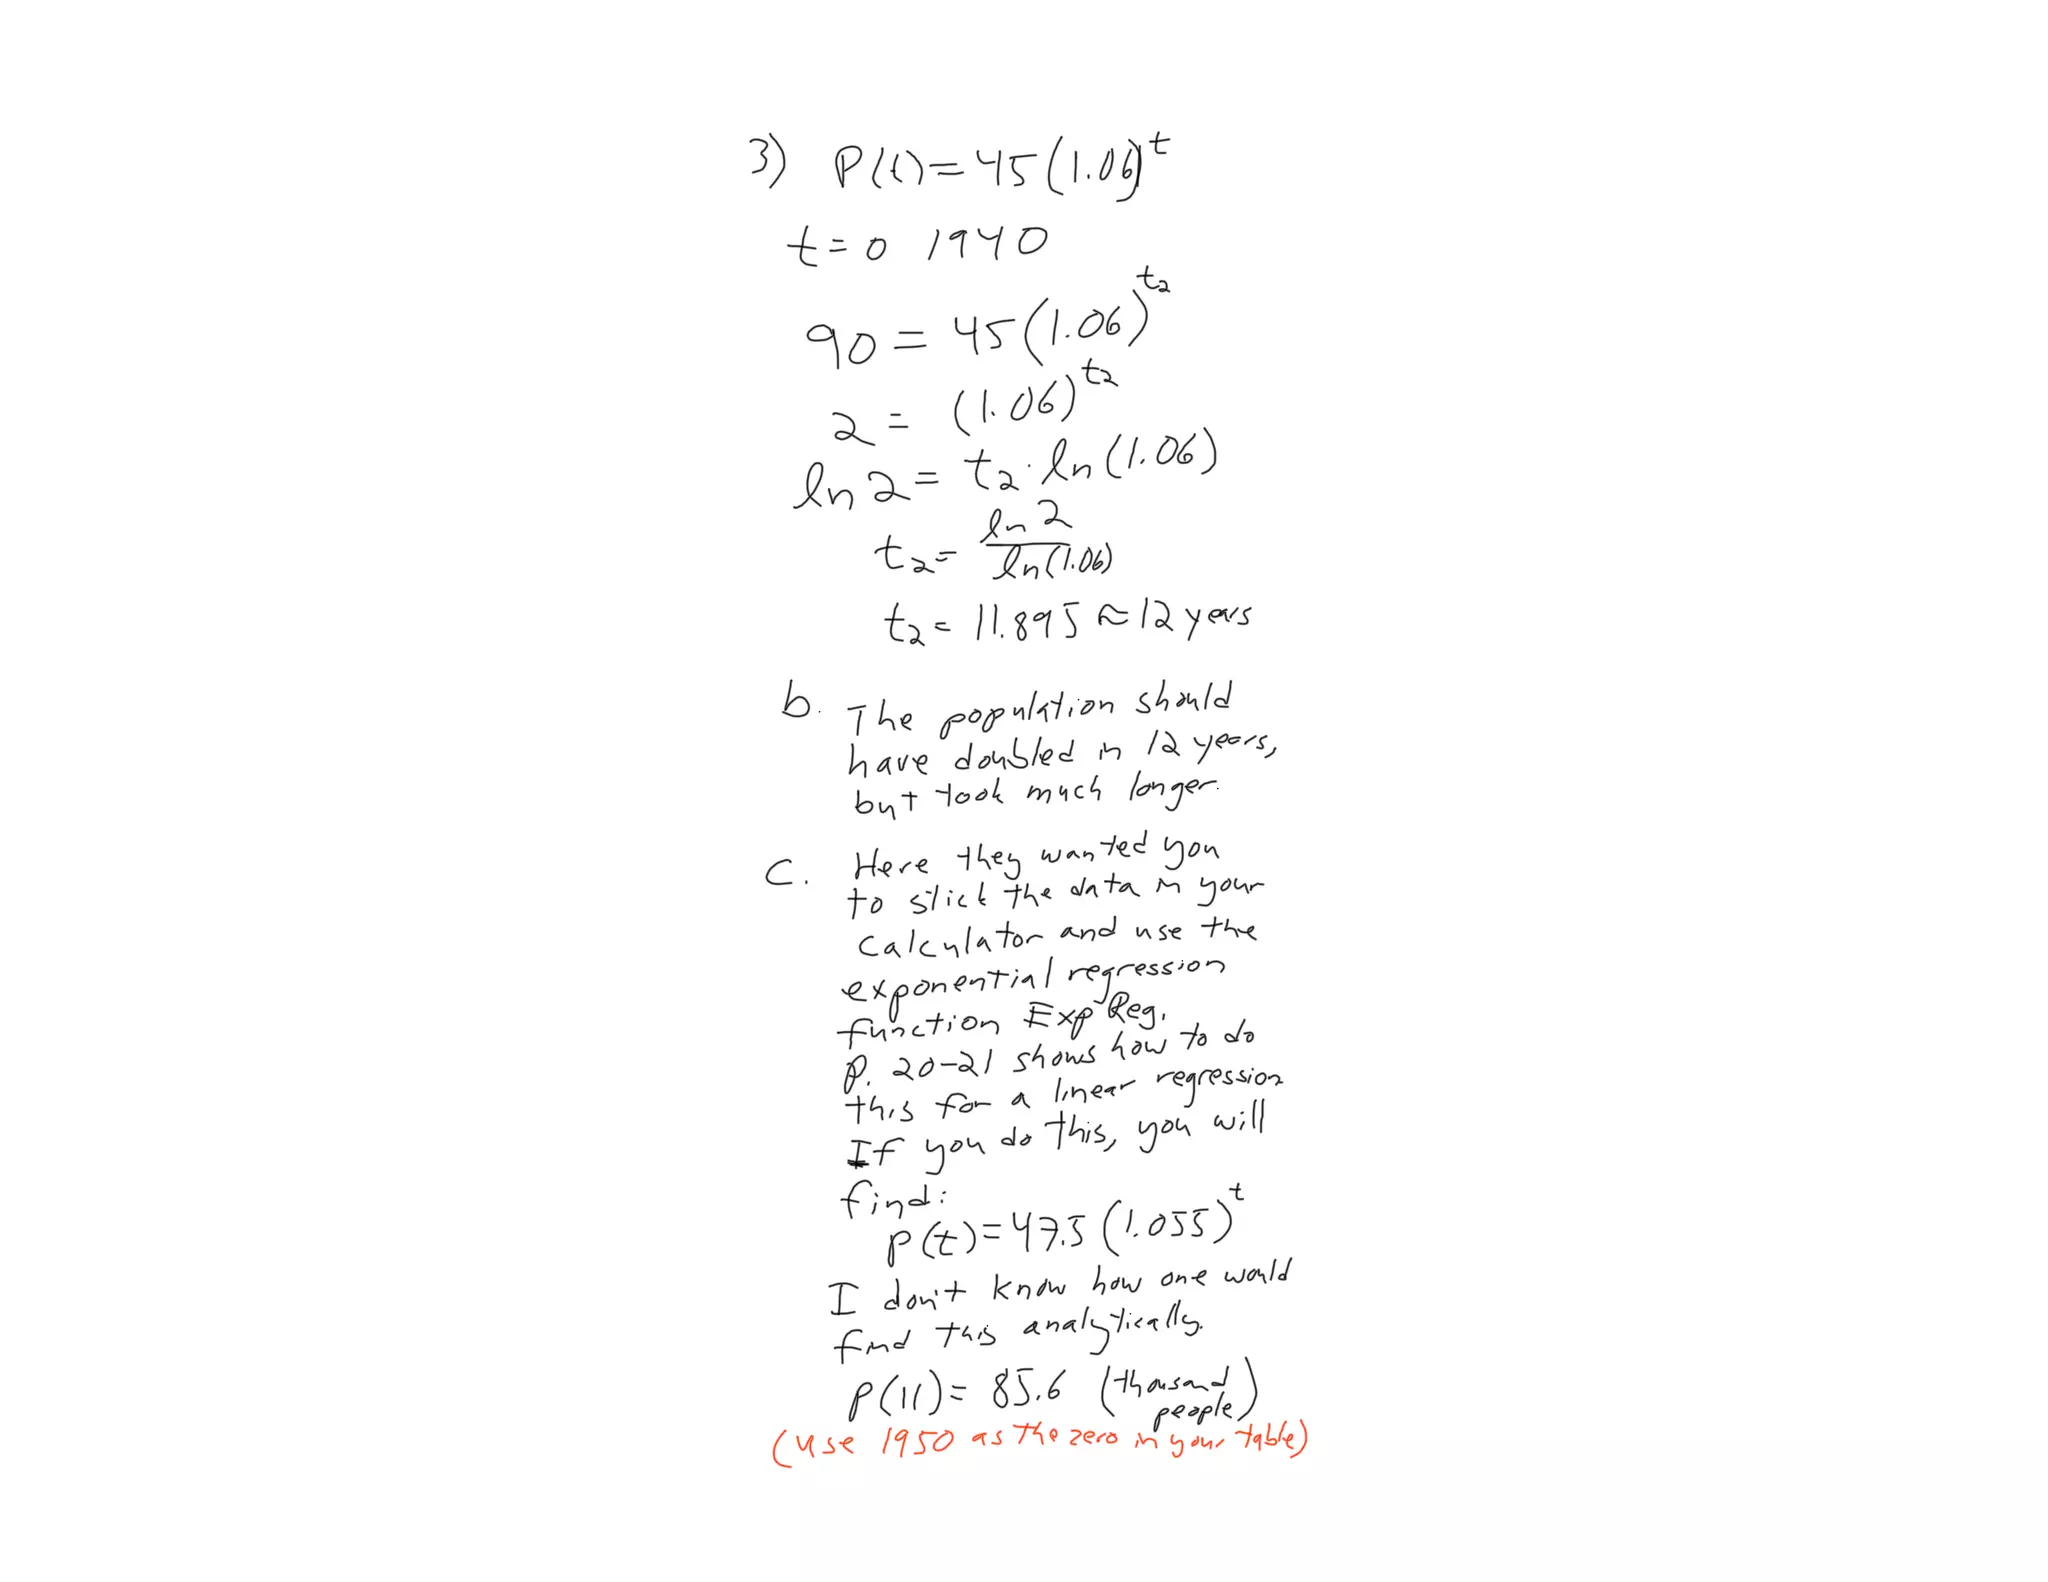 3) P(t)=45(1.06)^t
t=0 1940
90 = 45(1.06)^t₂
2 = (1.06)^t₂
ln 2 = t₂·ln(1.06)
t₂= ln 2 / ln(1.06)
t₂= 11.895 ≈ 12 years
b. The population should
have doubled in 12 years,
but took much longer.
C. Here they wanted you
to stick the data in your
calculator and use the
exponential regression
function ExpReg.
P. 20-21 shows how to do
this for a linear regression
If you do this, you will
find:
P(t)=47.5(1.055)^t
I don't know how one would
find this analytically.
P(11)= 85.6 (thousand
people)
(use 1950 as the zero in your table)